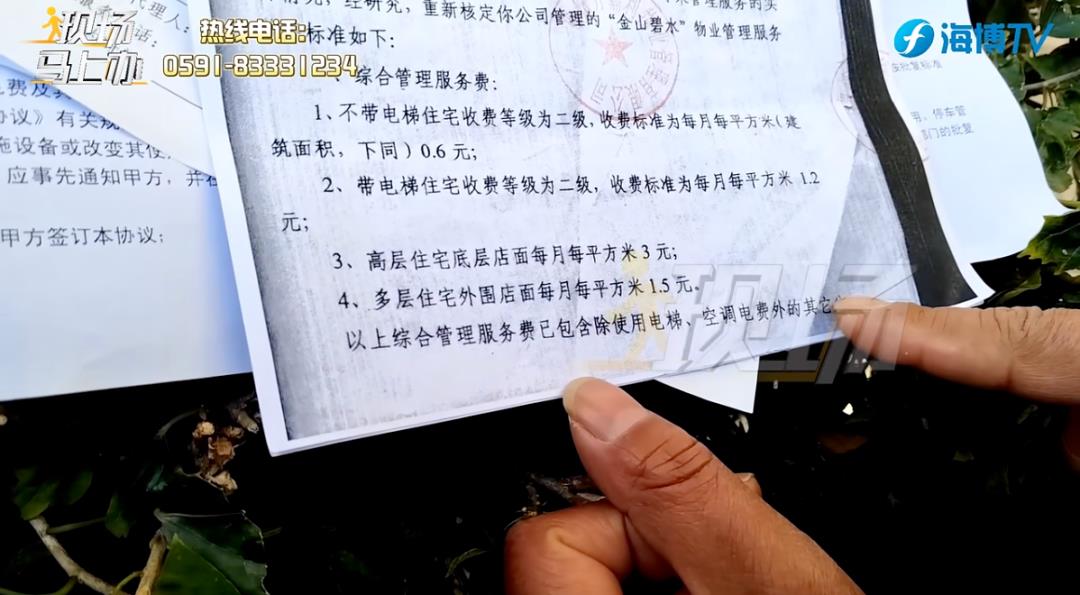 现场
马上办
热线电话:
0591-83331234
海博TV
代理人:
电话:
管理服务的实
经研究,重新核定你公司管理的“金山碧水”物业管理服务
标准如下:
综合管理服务费:
1、不带电梯住宅收费等级为二级,收费标准为每月每平方米(建
筑面积,下同)0.6元;
2、带电梯住宅收费等级为二级,收费标准为每月每平方米1.2
元;
3、高层住宅底层店面每月每平方米3元;
4、多层住宅外围店面每月每平方米1.5元。
以上综合管理服务费已包含除使用电梯、空调电费外的其它
电费及
协议》有关规
施设备或改变其使
应事先通知甲方,并在
甲方签订本协议;
按批复标准
停车管
部门的批复
现场